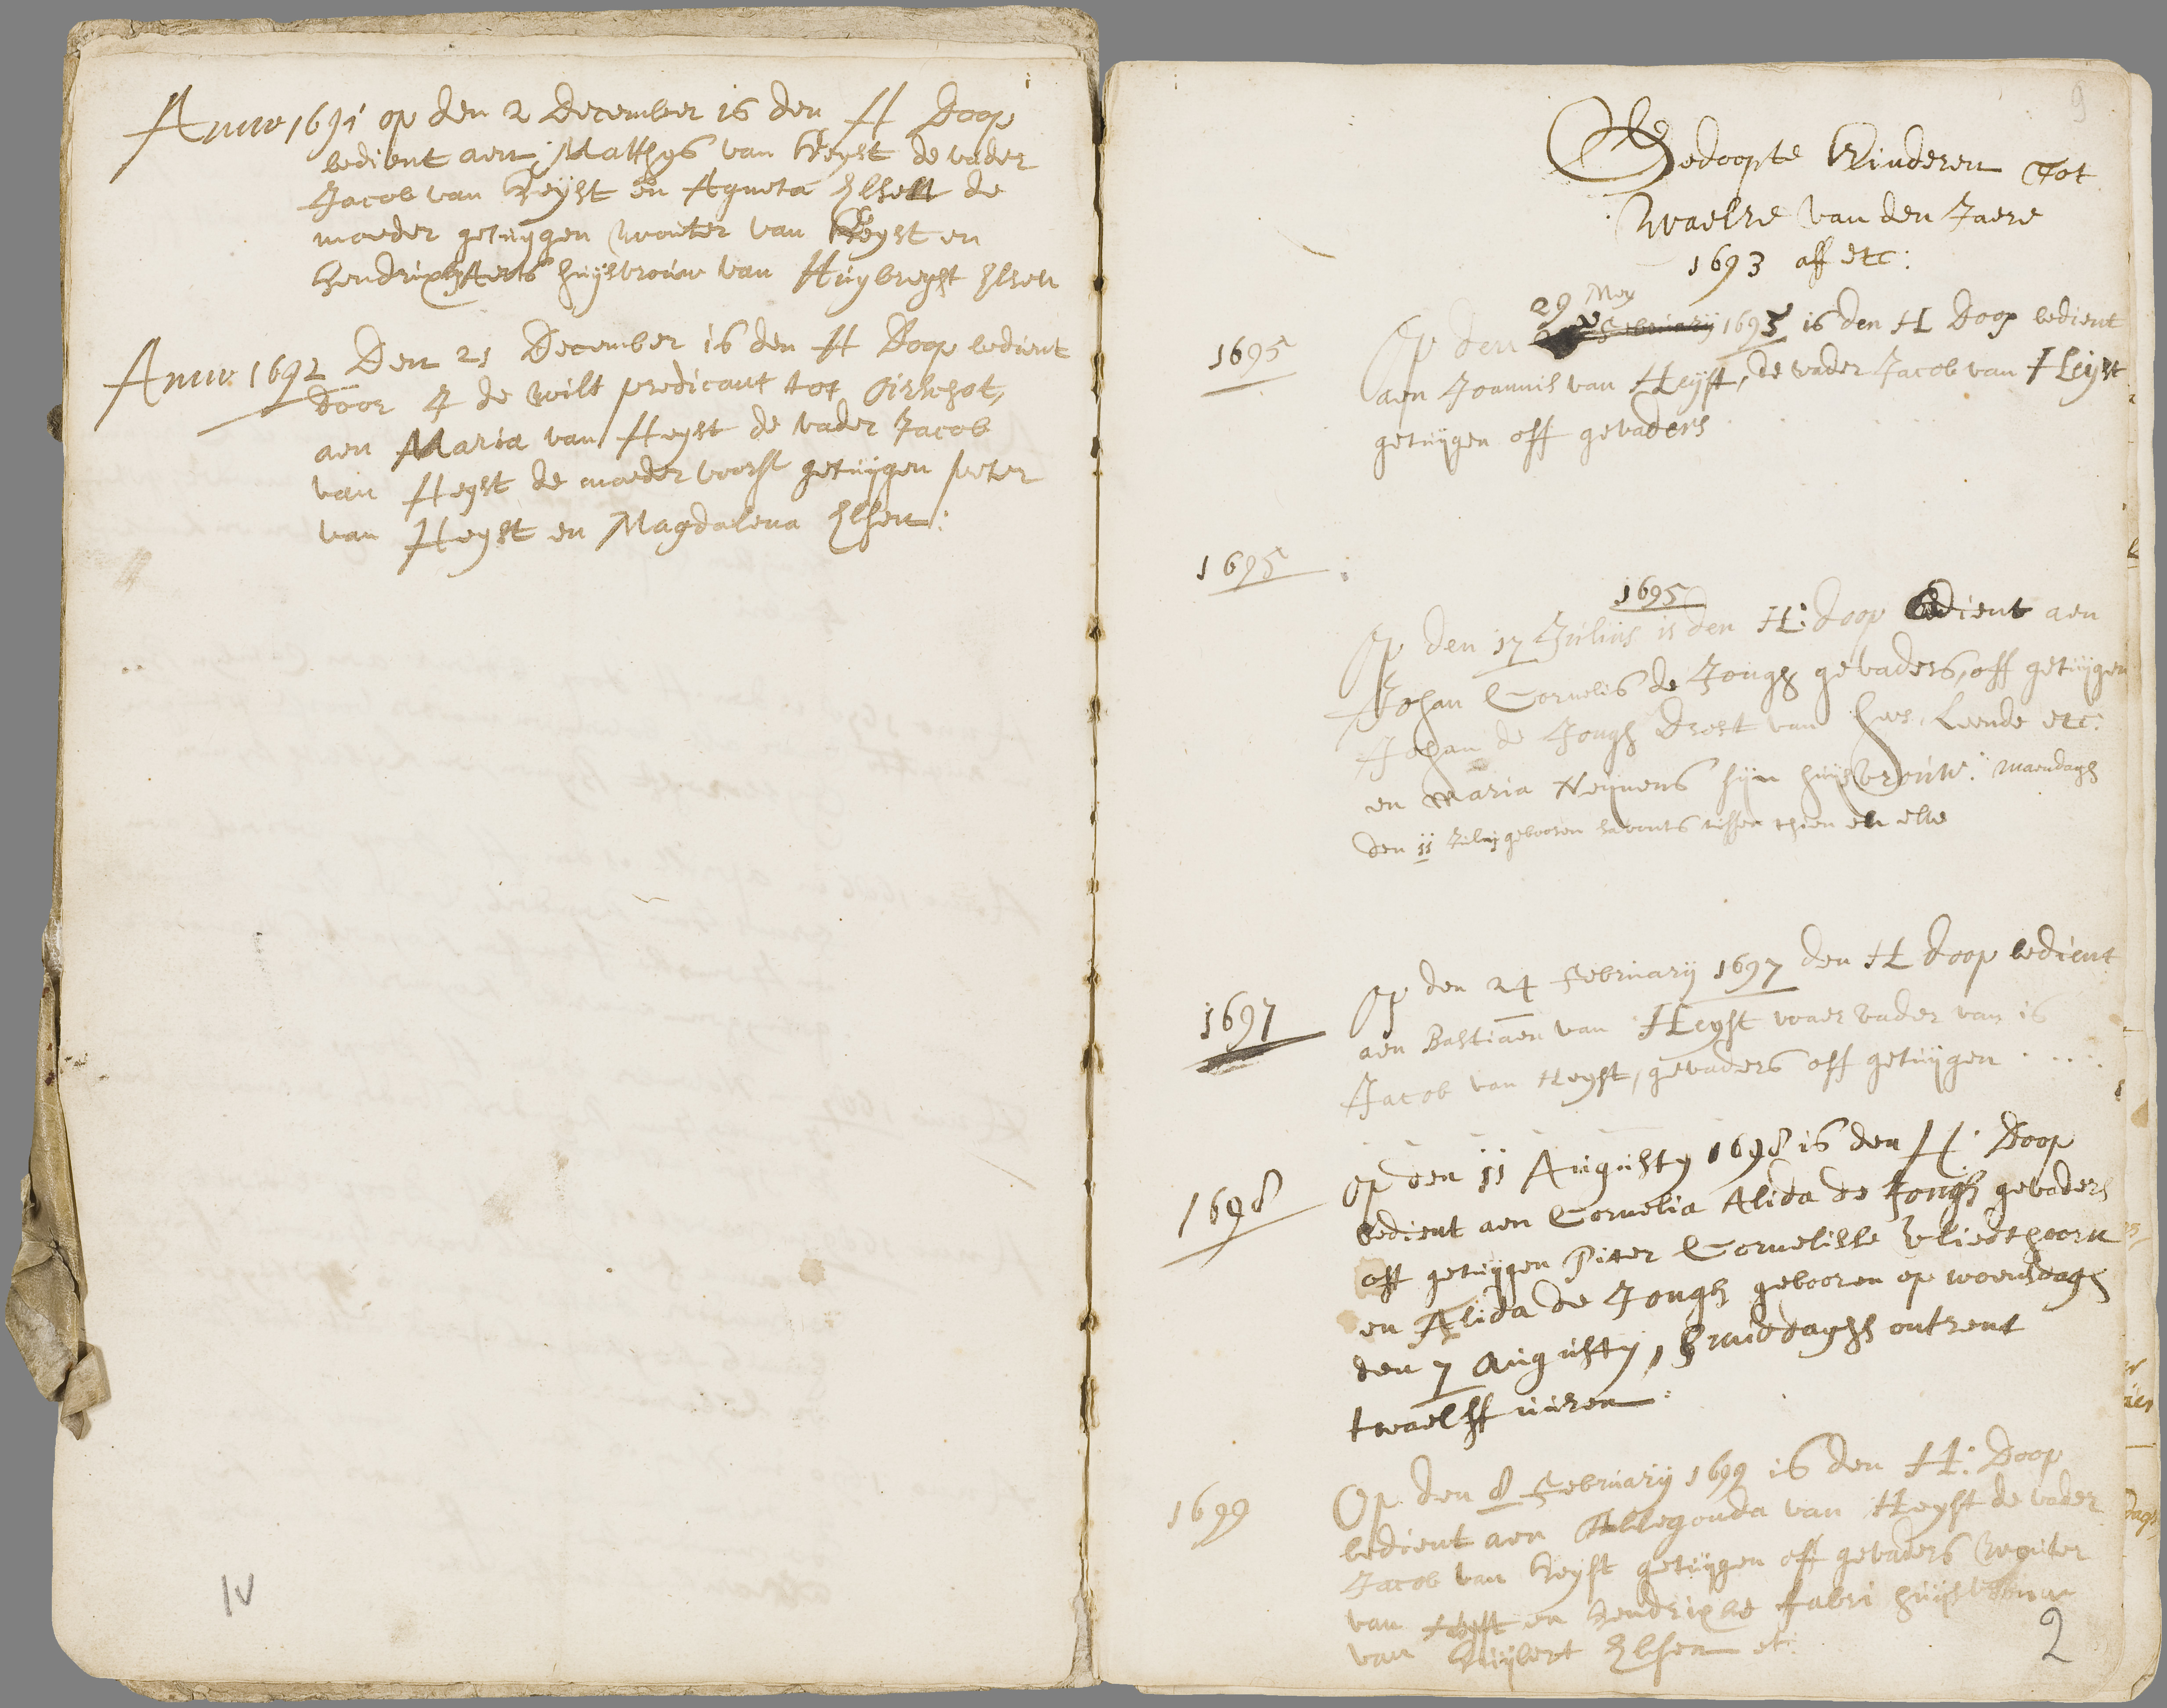 Anno 1691 op den 2 December is den H Doop
bedient aen Matthijs van Heyst de vader
Jacob van Heÿst en Agneta Elsen de
moeder getuijgen Wouter van Heyst en
huijsvrouw van Huijbreght Elsen
Anno 1692 Den 21 December is den H Doop bedient
Door J de Wilt predicant tot Oirschot,
aen Maria van Heyst de vader Jacob
van Heyst de moeder voorst getuijgen peter
van Heyst en Magdalena Elsen:
IV
9
Gedoopte Kinderen Tot
Waelre van den Jaere
1693 aff etc:
29 Meij
1695
Op den februarij 1695 is den H Doop bedient
aen Joannis van Heÿst, de vader Jacob van Heijst
getuijgen off gevaders
1695
1695
Op den 17 Julius is den H: doop bedient aen
Johan Cornelis de Jongh gevaders, off getuijgen
Johan de Jongh Drost van Hees, Leende etc:
en Maria Neijnens sijn huijsvrouw: maendagh
den 11 Julij gebooren savonts tussen thien en elve
1697
Op den 24 februarij 1697 den H doop bedient
aen Bastiaen van Heyst waer vader van is
Jacob van Heyst, gevaders off getuijgen . . . .
1698
Op den 11 Augusty 1698 is den H: Doop
bedient aen Cornelia Alida de Jongh gevaders
off getuijgen Piter Cornelisse Vliethoorn
en Alida de Jongh gebooren op woensdagh
den 7 Augusty, smiddaghs ontrent
twaelff uiren:
1699
Op den 8 februarij 1699 is den H: Doop
bedient aen Aldegonda van Heyst de vader
Jacob van Heyst getuijgen off gevaders Wouter
van Heyst en Hendrixke fabri huijsvrouw
van Huijbert Elsen etc:
2